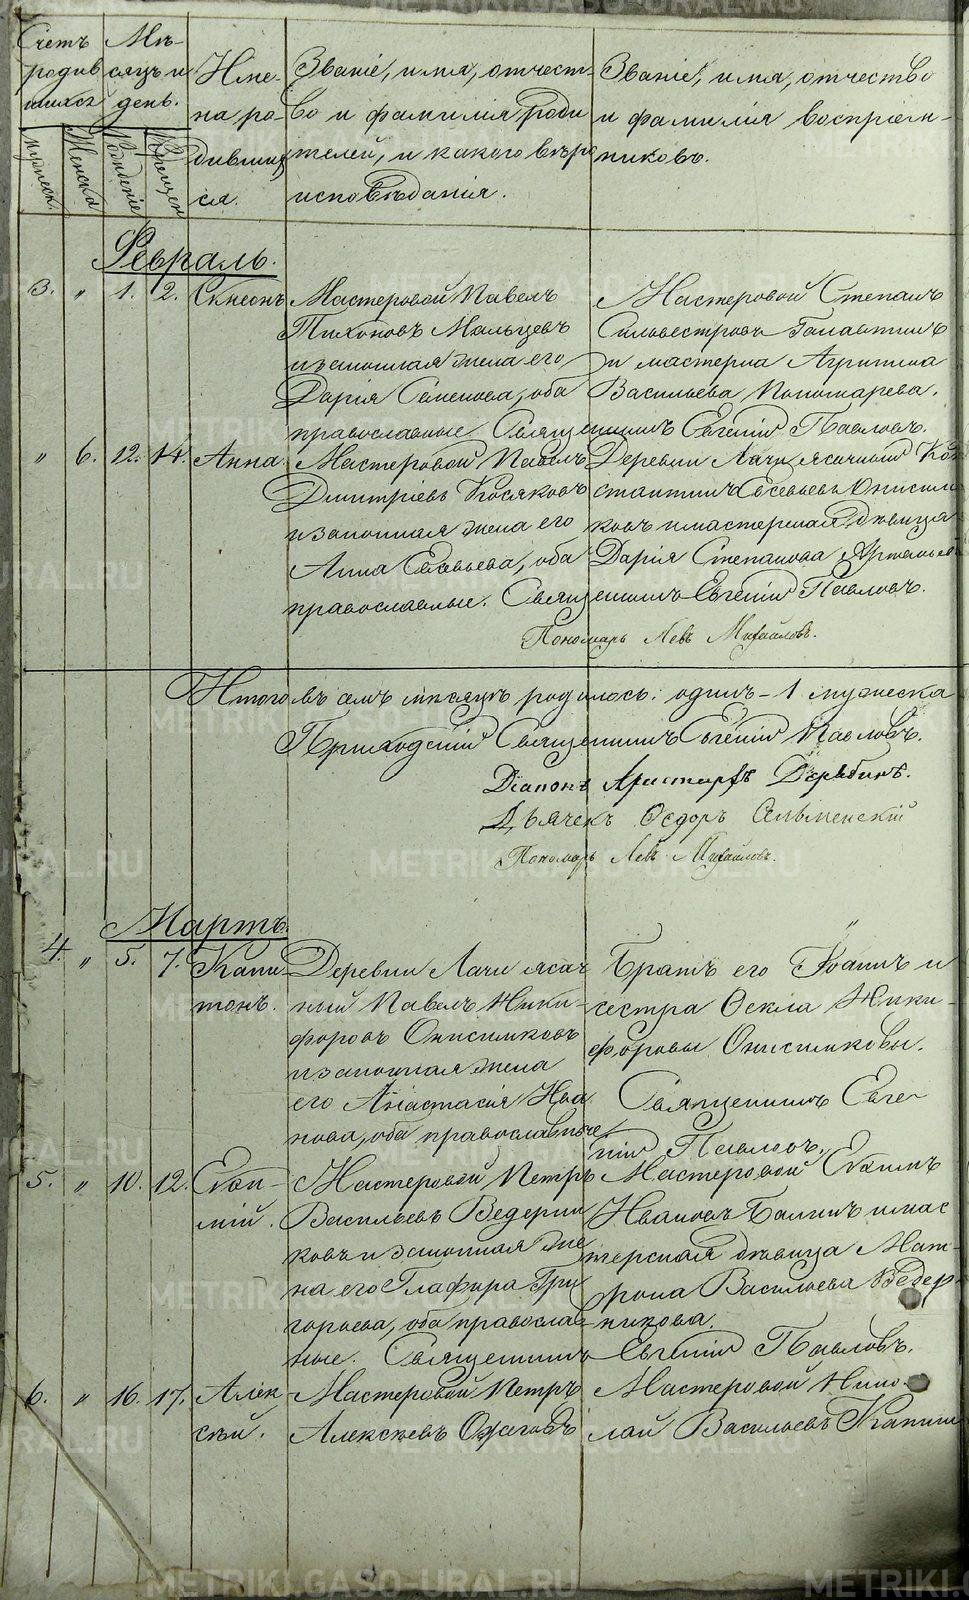 Счетъ родив
шихся
Мѣ-
сяцъ и
день.
Мужеск.
Женска
Рожденіе
Крещен
Име-
на ро-
дившиих
ся.
Званіе, имя, отчест-
во и фамилія роди
телей, и какого вѣро
исповѣданія.
Званіе, имя, отчество
и фамилія воспріем-
никовъ.
Февраль.
3. " 1. 2. Симеонъ
Мастеровой Павелъ
Тихоновъ Мальцевъ
и законная жена его
Дарія Семенова, оба
православные.
Мастеровой Степанъ
Сильвестровъ
и мастерка Агрипина
Васильева Пономарева.
Священникъ Евгеній Павловъ.
" 6. 12. 14. Анна.
Мастеровой Павелъ
Дмитріевъ Косяковъ
и законная жена его
Анна Евсевьева, оба
православные.
Деревни Лачи ясачный Кон
стантинъ Евсевьевъ Онисим
ковъ и мастерская дѣвица
Дарія Степанова
Священникъ Евгеній Павловъ.
Пономарь Левъ Михайловъ.
Итого въ семъ мѣсяцѣ родилось: одинъ - 1 мужеска
Приходскій Священникъ Евгеній Павловъ.
Діаконъ Аристархъ Дерябинъ.
Дьячекъ Ѳедоръ Сельменскій
Пономарь Левъ Михайловъ.
Мартъ.
4. " 5. 7. Капи-
тонъ.
Деревни Лачи ясач
ный Павелъ Ники-
форовъ Онисимковъ
и законная жена
его Анастасія Ива
нова, оба православные
Братъ его Іоаннъ и
сестра Ѳекла Ники-
форовы Онисимковы.
Священникъ Евге-
ній Павловъ.
5. " 10. 12. Евѳи-
мій.
Мастеровой Петръ
Васильевъ Ведерни
ковъ и законная же
на его Глафира Гри
горьева, оба православ-
ные.
Мастеровой Евѳимъ
Ивановъ Балинъ и мас
терская дѣвица Мат-
рона Васильева Ведер-
никова.
Священникъ Евгеній Павловъ.
6. " 16. 17. Алек
сѣй.
Мастеровой Петръ
Алексѣевъ
Мастеровой Нико-
лай Васильевъ
METRIKI.GASO-URAL.RU